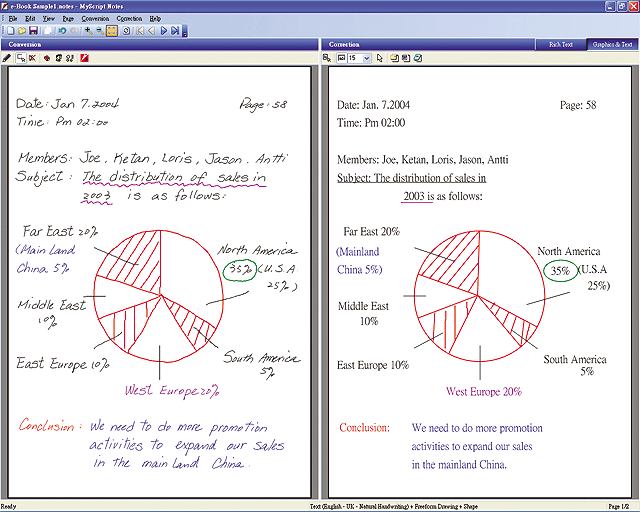 e-Book Sample1.notes - MyScript Notes
File Edit View Page Conversion Correction Help
Conversion
Correction
Rich Text
Graphics & Text
15
Date: Jan 7.2004 Page: 58
Time: Pm 02:00
Members: Joe, Ketan, Loris, Jason. Antti
Subject: The distribution of sales in
2003 is as follows:
Far East 20%
(Main Land
China 5%
North America
35% (U.S.A
25%)
Middle East
10%
East Europe 10%
South America
5%
West Europe 20%
Conclusion: We need to do more promotion
activities to expand our sales
in the main Land China.
Date: Jan. 7.2004 Page: 58
Time: Pm 02:00
Members: Joe, Ketan, Loris, Jason, Antti
Subject: The distribution of sales in
2003 is as follows:
Far East 20%
(Mainland
China 5%)
North America
35% (U.S.A
25%)
Middle East
10%
East Europe 10%
South America
5%
West Europe 20%
Conclusion: We need to do more promotion
activities to expand our sales
in the mainland China.
Ready
Text (English - UK - Natural Handwriting) + Freeform Drawing + Shape
Page 1/2